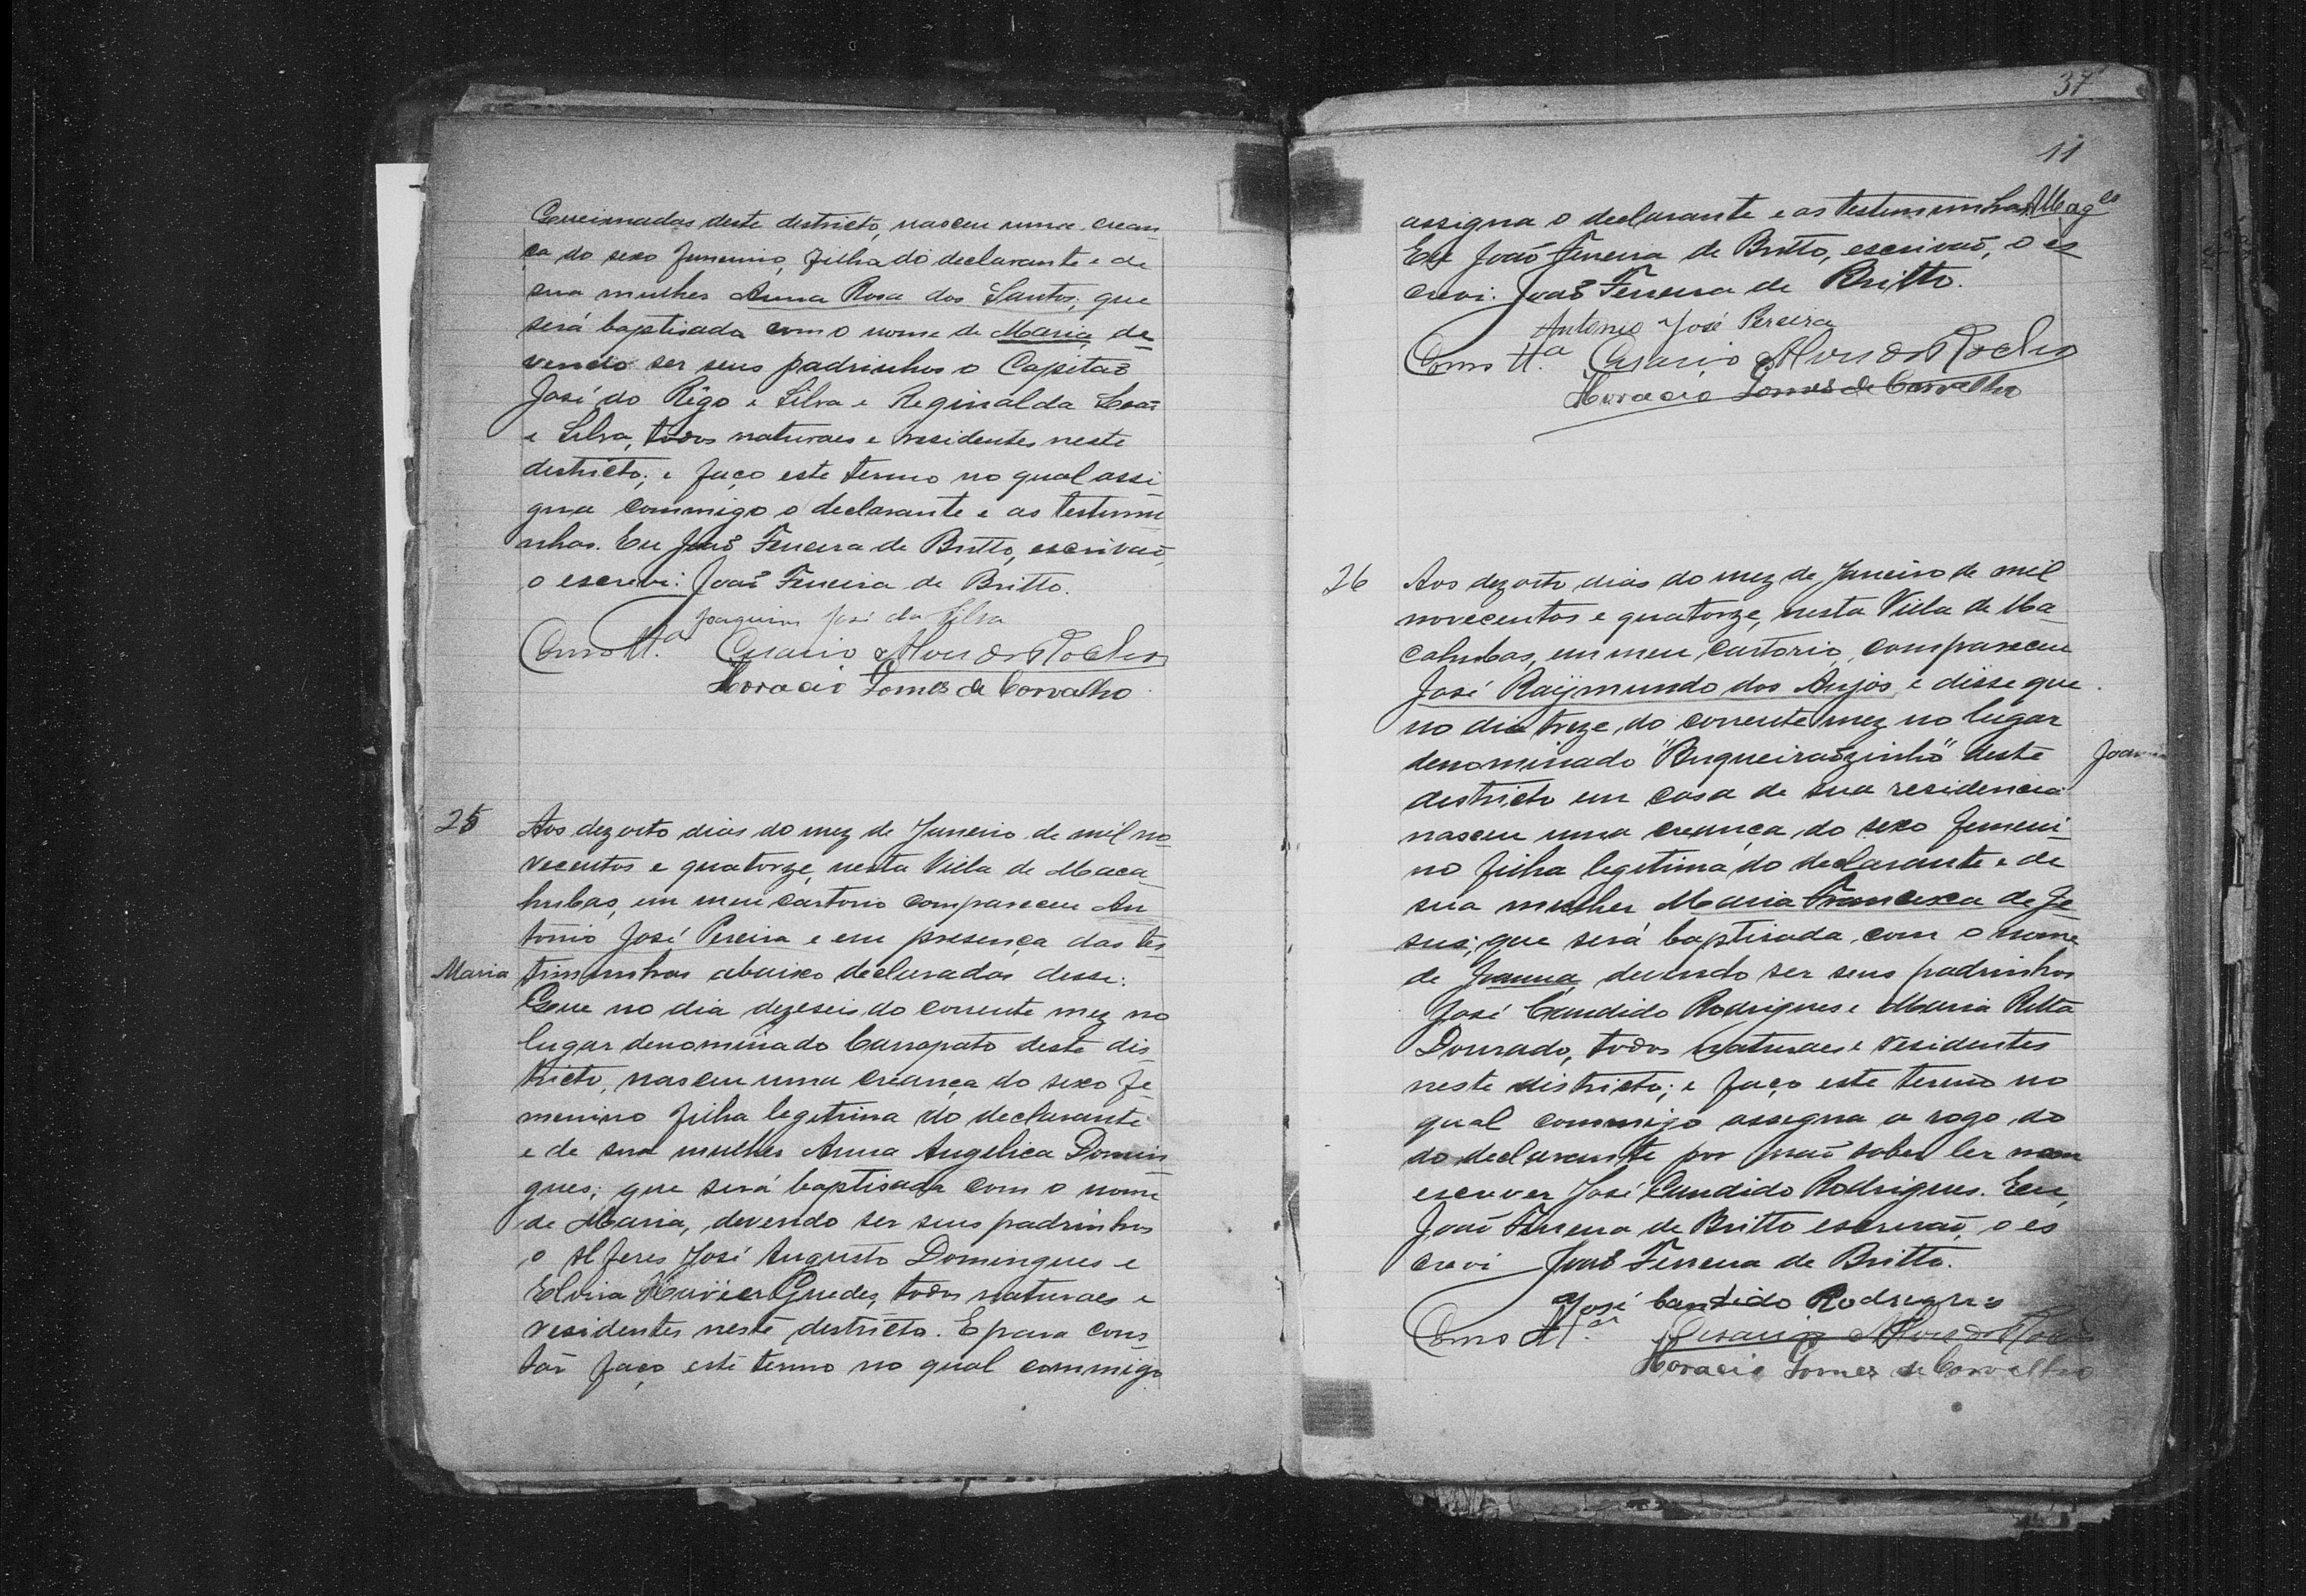 Queimadas deste districto, nasceu uma crean
ça do sexo femenino, filha do declarante e de
sua mulher Anna Rosa dos Santos; que
será baptisada com o nome de Maria, de
vendo ser seus padrinhos o Capitaõ
José do Rêgo e Silva e Reginalda
e Silva, todos naturaes e residentes neste
districto; e faço este termo no qual assi
gna commigo o declarante e as testemu
nhas. Eu Joaõ Ferreira de Britto, escrivaõ,
o escrevi. Joaõ Ferreira de Britto.
Joaquim José da Silva
Como tt.ª Cesario Alves da Rocha
Horacio Gomes de Carvalho
25 Aos dezoito dias do mez de Janeiro de mil no
vecentos e quatorze, nesta Villa de Maca
hubas, em meu cartorio compareceu An
tonio José Pereira e em presença das tes
Maria timunhas abaixo declaradas desse:
Que no dia dezeseis do corrente mez no
lugar denominado Carrapato deste dis
tricto, nasceu uma creança do sexo fe
menino filha legitima do declarante
e de sua mulher Anna Angelica Domin
gues; que será baptisada com o nome
de Maria, devendo ser seus padrinhos
o Alferes José Augusto Domingues e
Elvira Xavier Guedes, todos naturaes e
residentes neste districto. E para cons
tar faço este termo no qual commigo
37
11
assigna o declarante e as testemunhas.
Eu Joaõ Ferreira de Britto, escrivaõ, o es
crevi. Joaõ Ferreira de Britto.
Antonio José Pereira
Como tt.ª Cesario Alves da Rocha
Horacio Gomes de Carvalho
26 Aos dezoito dias do mez de Janeiro de mil
novecentos e quatorze, nesta Villa de Ma
cahubas, em meu cartorio, compareceu
José Raymundo dos Anjos e disse que
no dia treze do corrente mez no lugar
denominado "Buqueiraõzinho" deste
districto em casa de sua residencia
nasceu uma creança do sexo femeni
no filha legitima do declarante e de
sua mulher Maria Francisca de Je
sus; que será baptisada com o nome
de Joanna, devendo ser seus padrinhos
José Candido Rodrigues e Maria Ritta
Dourado, todos naturaes e residentes
neste districto; e faço este termo no
qual commigo assigna a rogo do
do declarante por naõ saber ler nem
escrever José Candido Rodrigues. Eu,
Joaõ Ferreira de Britto escrivaõ, o es
crevi Joaõ Ferreira de Britto.
José Candido Rodrigues
Como tt.as Cesario Alves da Rocha
Horacio Gomes de Carvalho